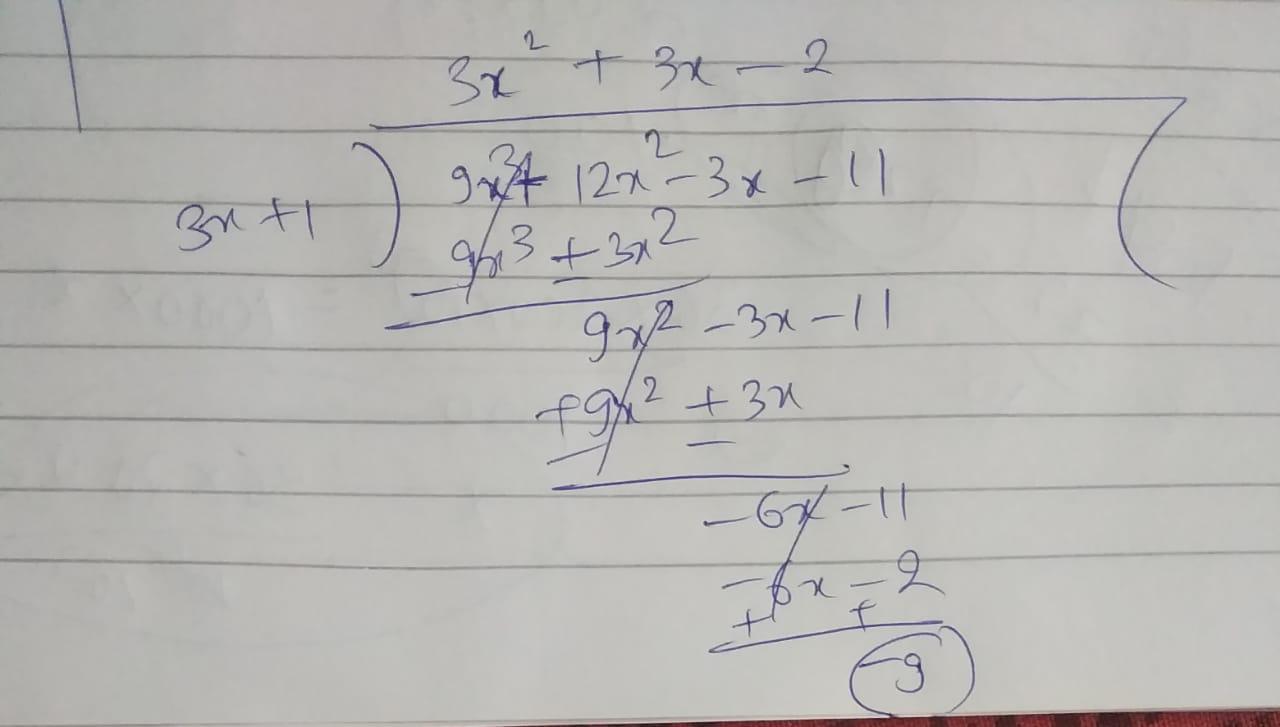 3x² + 3x - 2
3x + 1 ) 9x³ + 12x² - 3x - 11 (
9x³ + 3x²
- -
9x² - 3x - 11
+9x² + 3x
- -
-6x - 11
-6x - 2
+ +
-9